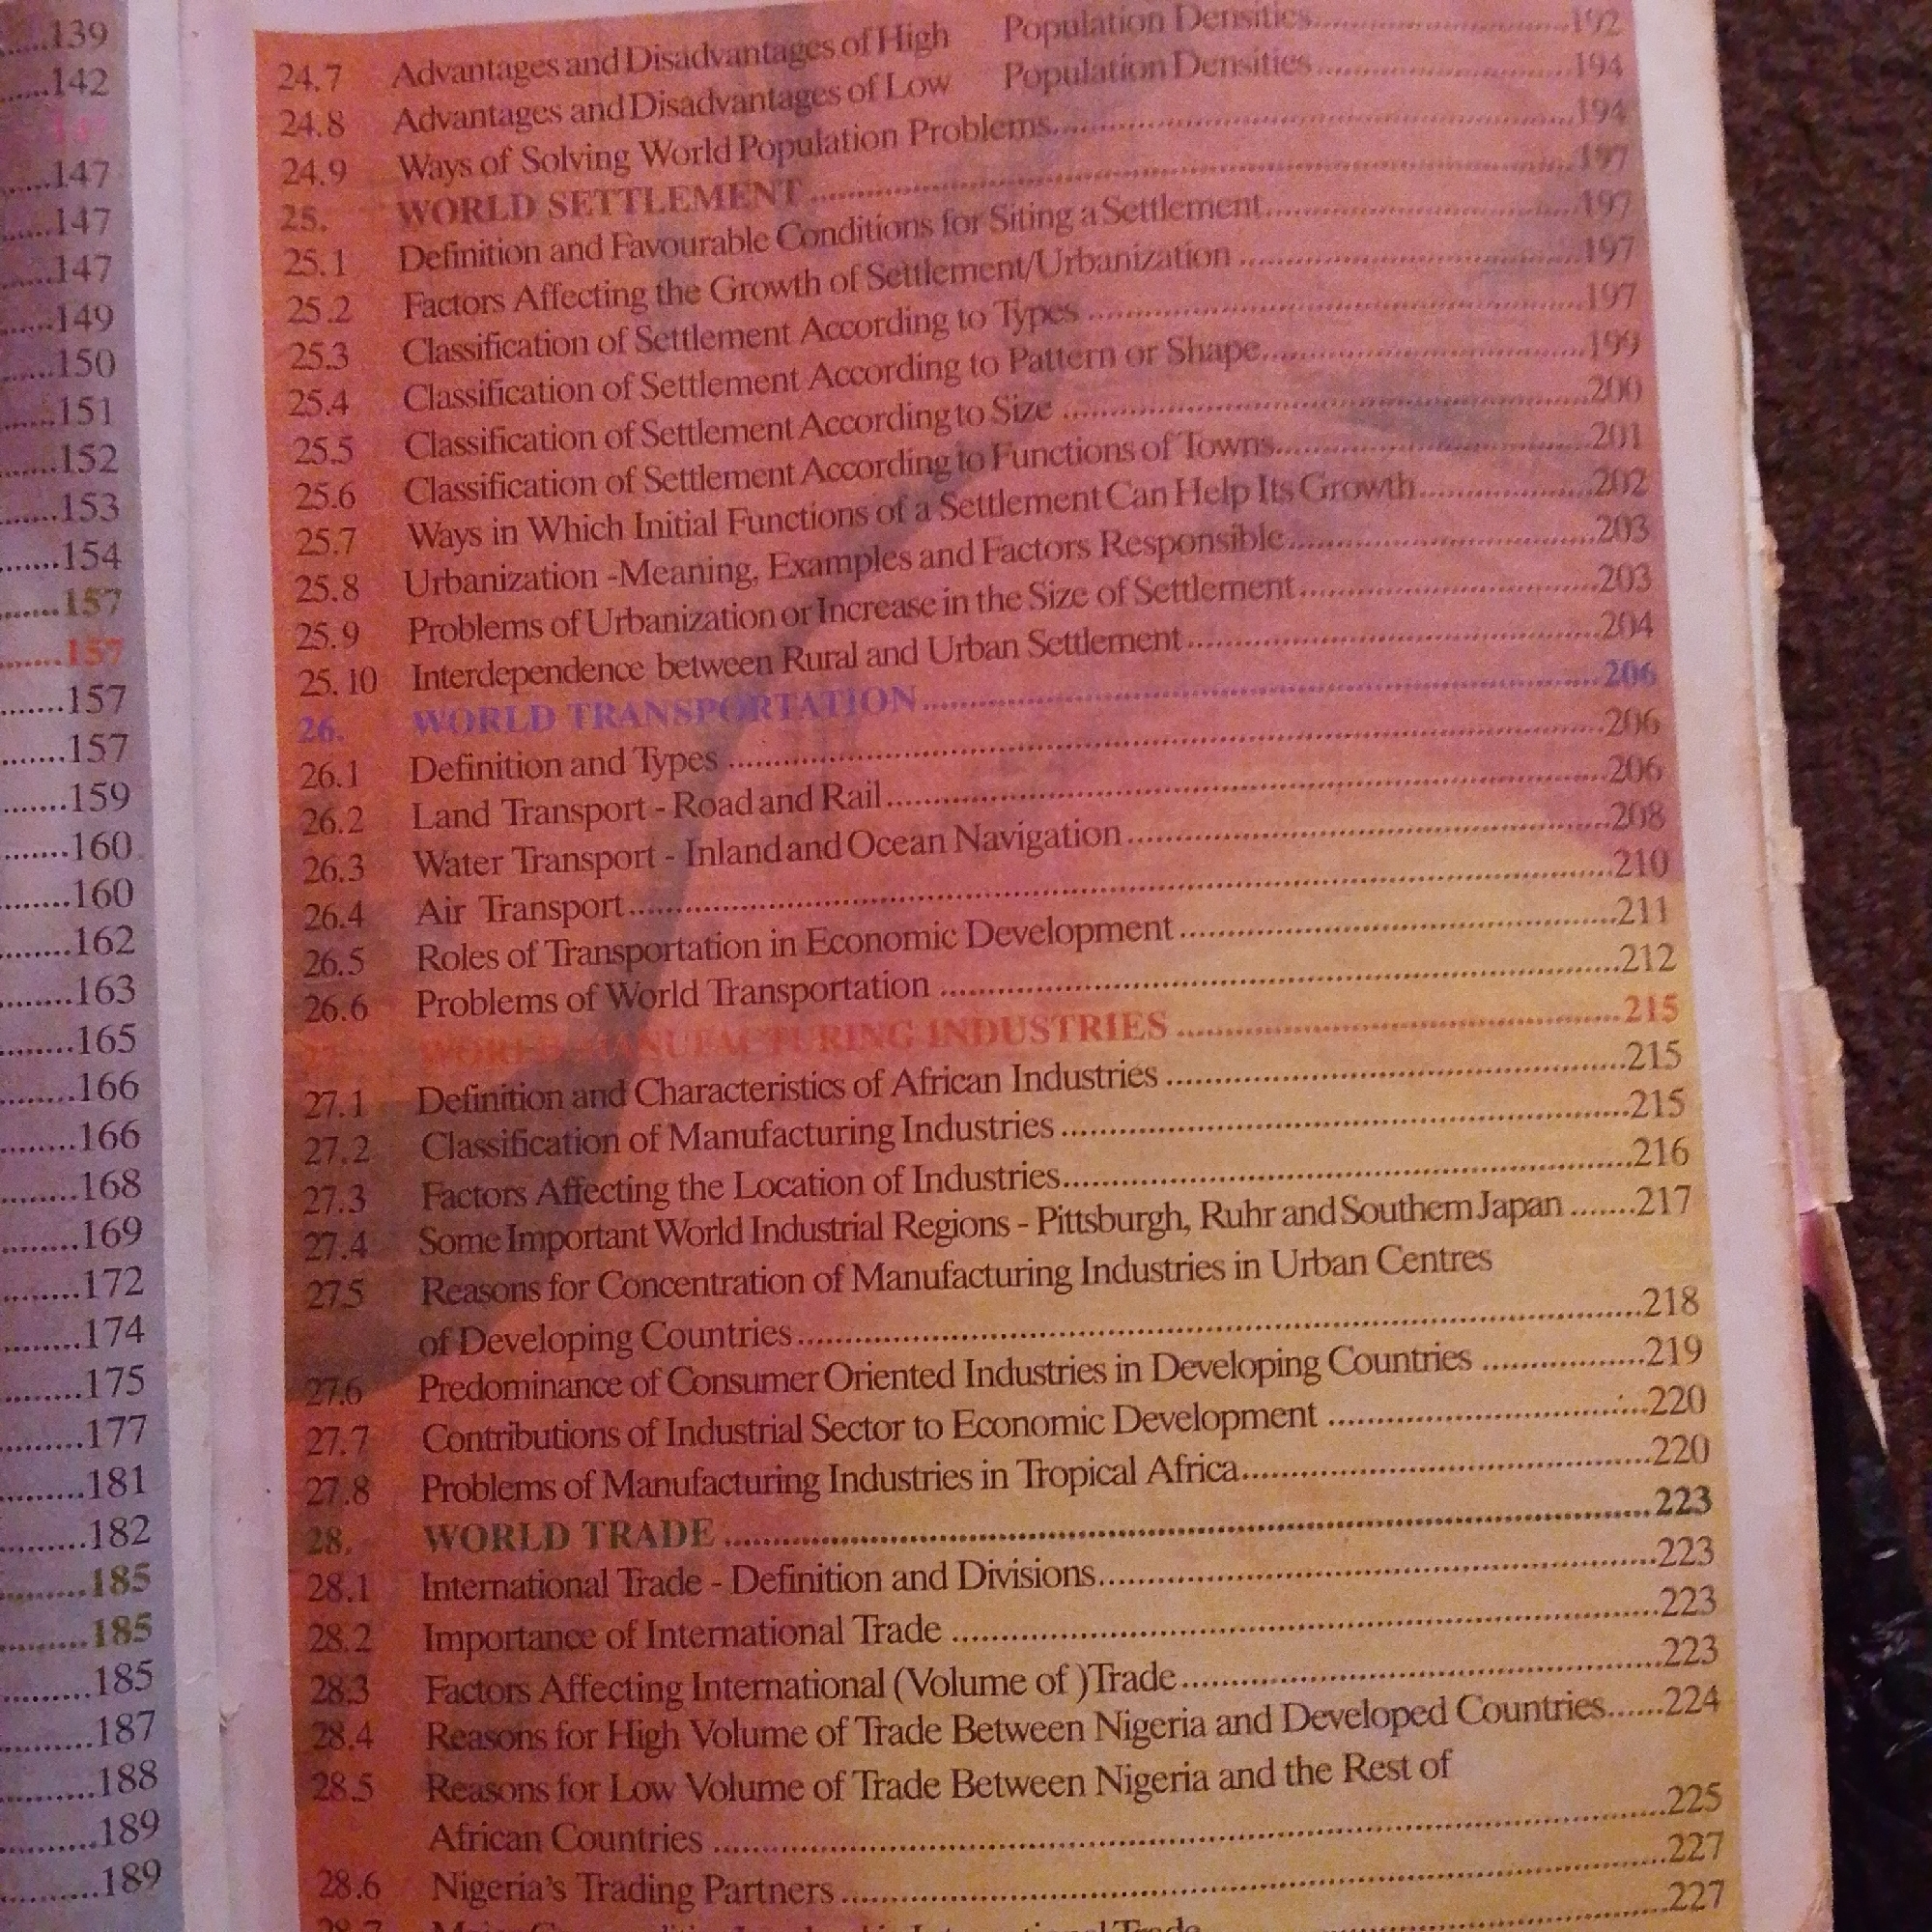 .....139
.....142
.....147
.....147
.....147
.....149
.....150
.....151
.....152
.....153
.....154
.....157
.....157
.....157
.....157
.....159
.....160
.....160
.....162
.....163
.....165
.....166
.....166
.....168
.....169
.....172
.....174
.....175
.....177
.....181
.....182
.....185
.....185
.....185
.....187
.....188
.....189
.....189
24.7 Advantages and Disadvantages of High Population Densities.....192
24.8 Advantages and Disadvantages of Low Population Densities.....194
24.9 Ways of Solving World Population Problems.....194
25. WORLD SETTLEMENT.....197
25.1 Definition and Favourable Conditions for Siting a Settlement.....197
25.2 Factors Affecting the Growth of Settlement/Urbanization.....197
25.3 Classification of Settlement According to Types.....197
25.4 Classification of Settlement According to Pattern or Shape.....199
25.5 Classification of Settlement According to Size.....200
25.6 Classification of Settlement According to Functions of Towns.....201
25.7 Ways in Which Initial Functions of a Settlement Can Help Its Growth.....202
25.8 Urbanization -Meaning, Examples and Factors Responsible.....203
25.9 Problems of Urbanization or Increase in the Size of Settlement.....203
25.10 Interdependence between Rural and Urban Settlement.....204
26. WORLD TRANSPORTATION.....206
26.1 Definition and Types.....206
26.2 Land Transport - Road and Rail.....206
26.3 Water Transport - Inland and Ocean Navigation.....208
26.4 Air Transport.....210
26.5 Roles of Transportation in Economic Development.....211
26.6 Problems of World Transportation.....212
27. WORLD MANUFACTURING INDUSTRIES.....215
27.1 Definition and Characteristics of African Industries.....215
27.2 Classification of Manufacturing Industries.....215
27.3 Factors Affecting the Location of Industries.....216
27.4 Some Important World Industrial Regions - Pittsburgh, Ruhr and Southern Japan.....217
27.5 Reasons for Concentration of Manufacturing Industries in Urban Centres
of Developing Countries.....218
27.6 Predominance of Consumer Oriented Industries in Developing Countries.....219
27.7 Contributions of Industrial Sector to Economic Development.....220
27.8 Problems of Manufacturing Industries in Tropical Africa.....220
28. WORLD TRADE.....223
28.1 International Trade - Definition and Divisions.....223
28.2 Importance of International Trade.....223
28.3 Factors Affecting International (Volume of )Trade.....223
28.4 Reasons for High Volume of Trade Between Nigeria and Developed Countries.....224
28.5 Reasons for Low Volume of Trade Between Nigeria and the Rest of
African Countries.....225
28.6 Nigeria's Trading Partners.....227
28.7 Trade.....227